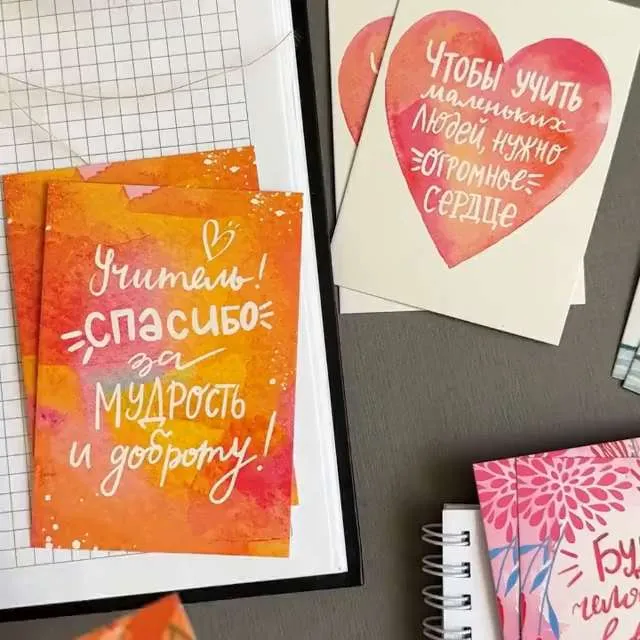 Учитель!
Спасибо
за
мудрость
и доброту!
Чтобы учить
маленьких
людей, нужно
огромное
сердце